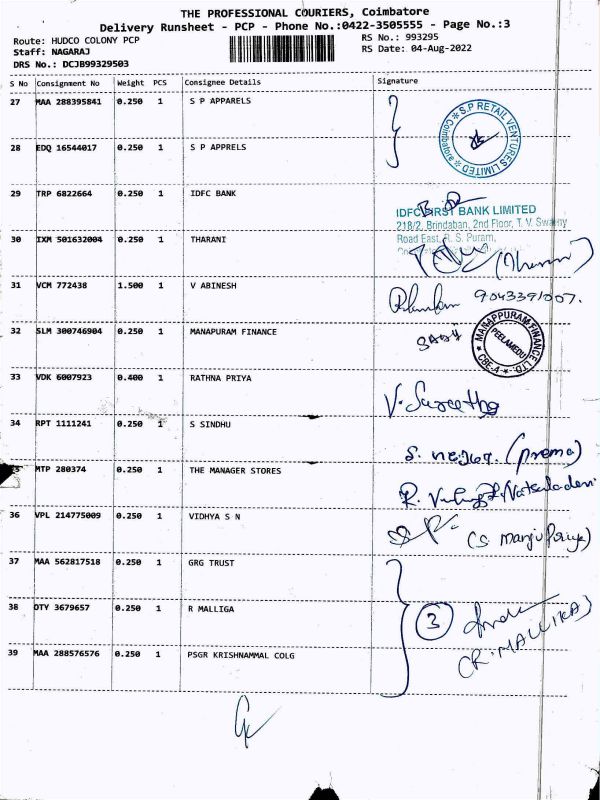 THE PROFESSIONAL COURIERS, Coimbatore
Delivery Runsheet - PCP - Phone No.:0422-3505555 - Page No.:3
Route: HUDCO COLONY PCP
RS No.: 993295
Staff: NAGARAJ
RS Date: 04-Aug-2022
DRS No.: DCJB99329503
S No Consignment No Weight PCS Consignee Details Signature
27 MAA 288395841 0.250 1 S P APPARELS
S.P RETAIL VENTURES LIMITED Coimbatore
28 EDQ 16544017 0.250 1 S P APPRELS
29 TRP 6822664 0.250 1 IDFC BANK
IDFC FIRST BANK LIMITED
218/2, Brindaban, 2nd Floor, T. V. Swamy
Road East, R. S. Puram,
30 IXM 501632004 0.250 1 THARANI
31 VCM 772438 1.500 1 V ABINESH
9043391007.
32 SLM 300746904 0.250 1 MANAPURAM FINANCE
MANAPPURAM FINANCE LTD. PEELAMEDU CBE-4
33 VDK 6007923 0.400 1 RATHNA PRIYA
34 RPT 1111241 0.250 1 S SINDHU
(prema)
35 MTP 280374 0.250 1 THE MANAGER STORES
36 VPL 214775009 0.250 1 VIDHYA S N
(S. Manju Priya)
37 MAA 562817518 0.250 1 GRG TRUST
38 OTY 3679657 0.250 1 R MALLIGA
3
(R. MALLIKA)
39 MAA 288576576 0.250 1 PSGR KRISHNAMMAL COLG